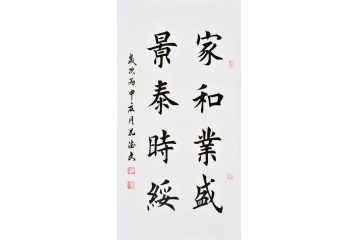 家和業盛
景泰時綏
歲次丙申月